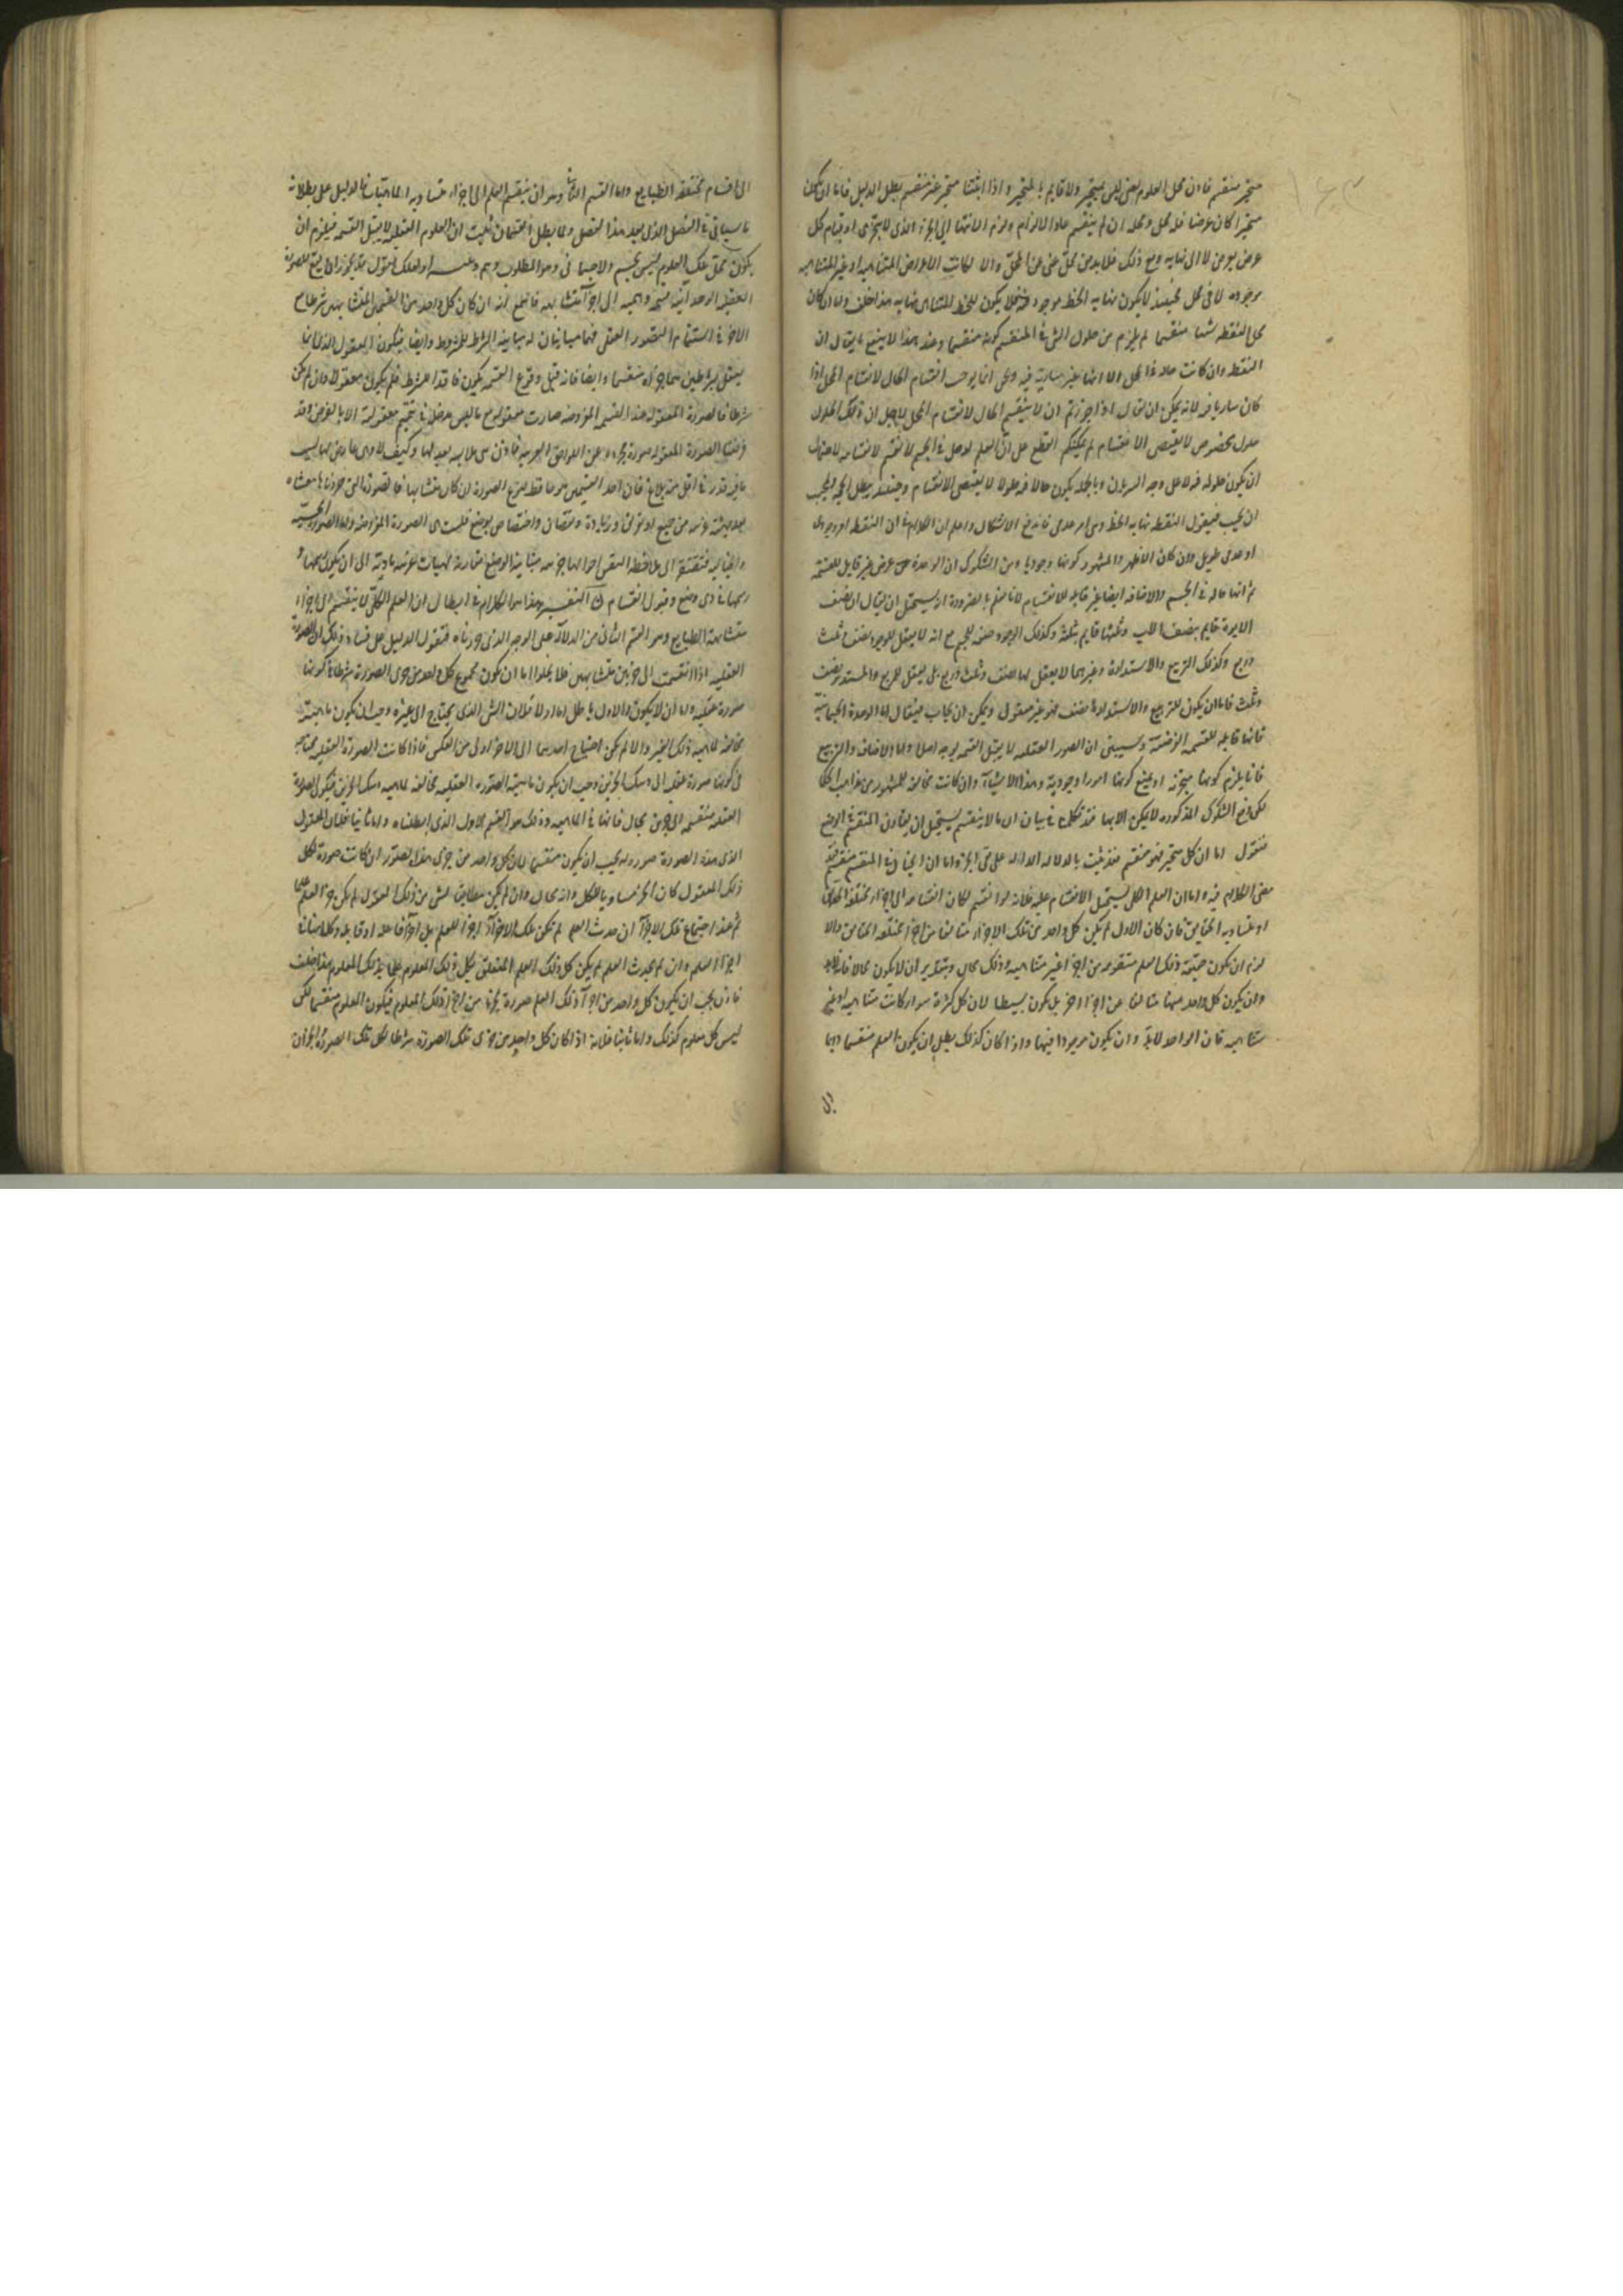 متحيز منقسم فاذن محل العلوم يعنى ليس بمتحيز ولا قايم بالمتحيز واذا اثبتنا متحيز غير منقسم بطل الدليل فاما ان يكون
متحيزا كان عرضا فله محل ومحله ان لم ينقسم عاد الالزام ولزم الانتها الى الجزء الذى لا يتجزى او قيام كل
عرض بعرض لا الى نهايه ومع ذلك فلا بد من محل غنى عن المحل والا لكانت الاعراض المتناهيه او غير المتناهيه
موجوده لا فى محل فحينئذ لا يكون نهايه الخط موجوده فلا يكون للخط المتناهى نهايه هذا خلف وان كان
محل النقطه شيئا منقسما لم يلزم من حلول الشى فى المنقسم كونه منقسما وعند هذا لا ينفع ما يقال ان
النقطه وان كانت حاله فى المحل الا انها غير ساريه فيه وهى انما يوجب انقسام الحال لانقسام المحل اذا
كان ساريا فيه لانه يمكن ان يقال اذا جوزتم ان لا ينقسم الحال لانقسام المحل لاجل ان ذلك الحلول
حلول مخصوص لا يقتضى الانقسام لم يمكنكم القطع على ان العلم لو حل فى الجسم لانقسم لانقسامه لاحتمال
ان يكون حلوله فيه لا على وجه السريان وبالجمله يكون حالا فيه حلولا لا يقتضى الانقسام وحينئذ يبطل الحجه ولمجيب
ان يجيب فيقول النقطه نهايه الخط وهى امر عدمى فاندفع الاشكال واعلم ان الكلام فى ان النقطه امر وجودى
او عدمى طويل وان كان الاظهر والمشهور كونها وجوديا ومن الشكوك ان الوحدة عرض غير قابل للقسمه
ثم انها حاله فى الجسم والاضافه ايضا غير قابله للانقسام لانا نعلم بالضرورة انه يستحيل ان يقال ان نصف
الابوة قايم بنصف الاب وثلثها قايم بثلثه وكذلك الوجود صفه للجسم مع انه لا يعقل للوجود نصف وثلث
وربع وكذلك التربيع والاستدارة وغيرهما لا يعقل لها نصف وثلث وربع بل يعقل للمربع والمستدير نصف
وثلث فاما ان يكون للتربيع والاستدارة نصف فهو غير معقول ويمكن ان يجاب فيقال اما الوحدة الجسمانية
فانها قابله للقسمه الفرضية وسيبين ان الصور العقليه لا يقبل القسمه بوجه اصلا واما الاضافه والتربيع
فانا يلزم كونها متجزئه او يمنع كونها امورا وجودية وهذا الاشياء وان كانت مخالفه للمشهور من مذاهب الحكما
لكن دفع الشكوك المذكوره لا يمكن الا بها فنذكر الان فى بيان ان ما لا ينقسم يستحيل ان يقارن المنقسم فى الوضع
فنقول اما ان كل متحيز فهو منقسم فقد ثبت بالدلاله الداله على نفى الجزء واما ان الحال فى المنقسم منقسم فقد
مضى الكلام فيه واما ان العلم الكلى يستحيل الانقسام عليه فلانه لو انقسم لكان انقسامه الى اجزاء مختلفه الحقايق
او متساويه الحقايق فان كان الاول لم يكن كل واحد من تلك الاجزاء متالفا من اجزاء مختلفه الحقايق والا
لزم ان يكون حقيقة ذلك العلم متقومه من اجزاء غير متناهيه وذلك محال وبتقدير ان لا يكون محالا فلا بد
وان يكون كل واحد منها متالفا عن اجزاء اخر بل يكون بسيطا لان كل كثرة سوا كانت متناهيه او غير
متناهيه فان الواحد لا بد وان يكون موجودا فيها واذا كان كذلك بطل ان يكون العلم منقسما دايما
الى اقسام مختلفة الطبايع واما القسم الثانى وهو ان ينقسم العلم الى اجزاء متساويه الماهيات فالدليل على بطلانه
ما سياتى فى الفصل الذى بعد هذا الفصل ولما بطل القسمان ثبت ان العلوم العقليه لا يقبل القسمه فيلزم ان
يكون محل تلك العلوم ليس بجسم ولا جسمانى وهو المطلوب وهم وتنبيه او لعلك تقول قد يجوز ان يقع للصورة
العقليه الوحدانيه قسمه وهميه الى اجزاء متشابهه فاسمع انه ان كان كل واحد من القسمين المتشابهين شرطا مع
الاخر فى استتمام التصور العقلى فهما مباينان له مباينه الشرط للمشروط وايضا فيكون المعقول الذى انما
يعقل بشرطين هما جزآه منقسما وايضا فانه قبل وقوع القسمه يكون فاقدا للشرط فلم يكن معقولا وان لم يكن
شرطا فالصورة المعقوله عند القسمه المفروضه صارت معقوله مع ما ليس مدخله فى تتميم معقوليته الا بالعرض وقد
فرضنا الصورة المعقوله صورة مجرده عن اللواحق الغريبه فاذن هى ملابسه بعد لها وكيف لا وهى عارض لها بسبب
ما فيه قدر فى اقل منه بلاغ فان احد القسمين هو حافظ لنوع الصورة ان كان متشابها فالصورة التى جردناها مغشاه
بعد بهيئة غريبه من جمع او تفريق وزيادة ونقصان واختصاص بوضع فليست هى الصورة المفروضه واما الصورة الحسية
والخياليه فتفتقر الى ملاحظه النفس احوالها جزئيه متباينه الوضع مقارنه لهيئات غريبه ماديه الى ان يكون رسمها و
رسمها فى ذى وضع وقبول انقسام التفسير هذا هو الكلام فى ابطال ان العلم الكلى لا ينقسم الى اجزاء
متشابهة الطبايع وهو القسم الثانى من الدلالة على الوجه الذى حررناه فنقول الدليل على فساد ذلك ان الصورة
العقليه اذا انقسمت الى جزئين متشابهين فلا يخلوا اما ان يكون مجموع كل واحد من جزئى الصورة شرطا فى كونها
صورة عقليه واما ان لا يكون والاول باطل اما اولا فلان الشى الذى يحتاج الى غيره وجب ان يكون ماهيته
مخالفه لماهيه ذلك الغير والا لم يكن احتياج احدهما الى الاخر اولى من العكس فاذا كانت الصورة العقليه محتاجه
فى كونها صورة عقليه الى ذينك الجزئين وجب ان يكون ماهية الصورة العقليه مخالفه لماهيه ذينك الجزئين فيكون الصورة
العقليه منقسمه الى جزئين مخالفين لها فى الماهيه وذلك هو القسم الاول الذى ابطلناه واما ثانيا فلان المعقول
الذى هذه الصورة صورته يجب ان يكون منقسما لان كل واحد من جزئى هذا التصور ان كانت صورة لكل
ذلك المعقول كان الجزء مساويا للكل وانه محال وان لم يكن مطابقا لشى من ذلك المعقول لم يكن جزء العلم علما
ثم عند اجتماع تلك الاجزاء ان حدث العلم لم تكن تلك الاجزاء اجزاء للعلم بل اجزاء فاعله او قابله وكلامنا فى
اجزاء العلم وان لم يحدث العلم لم يكن كل ذلك العلم المتعلق بكل ذلك المعلوم علما بذلك المعلوم هذا خلف
فاذن يجب ان يكون كل واحد من اجزاء ذلك العلم صورة لجزء من اجزاء ذلك المعلوم فيكون المعلوم منقسما لكن
ليس كل معلوم كذلك واما ثالثا فلانه اذا كان كل واحد من جزئى تلك الصورة شرطا لكل تلك الصورة والجزآن